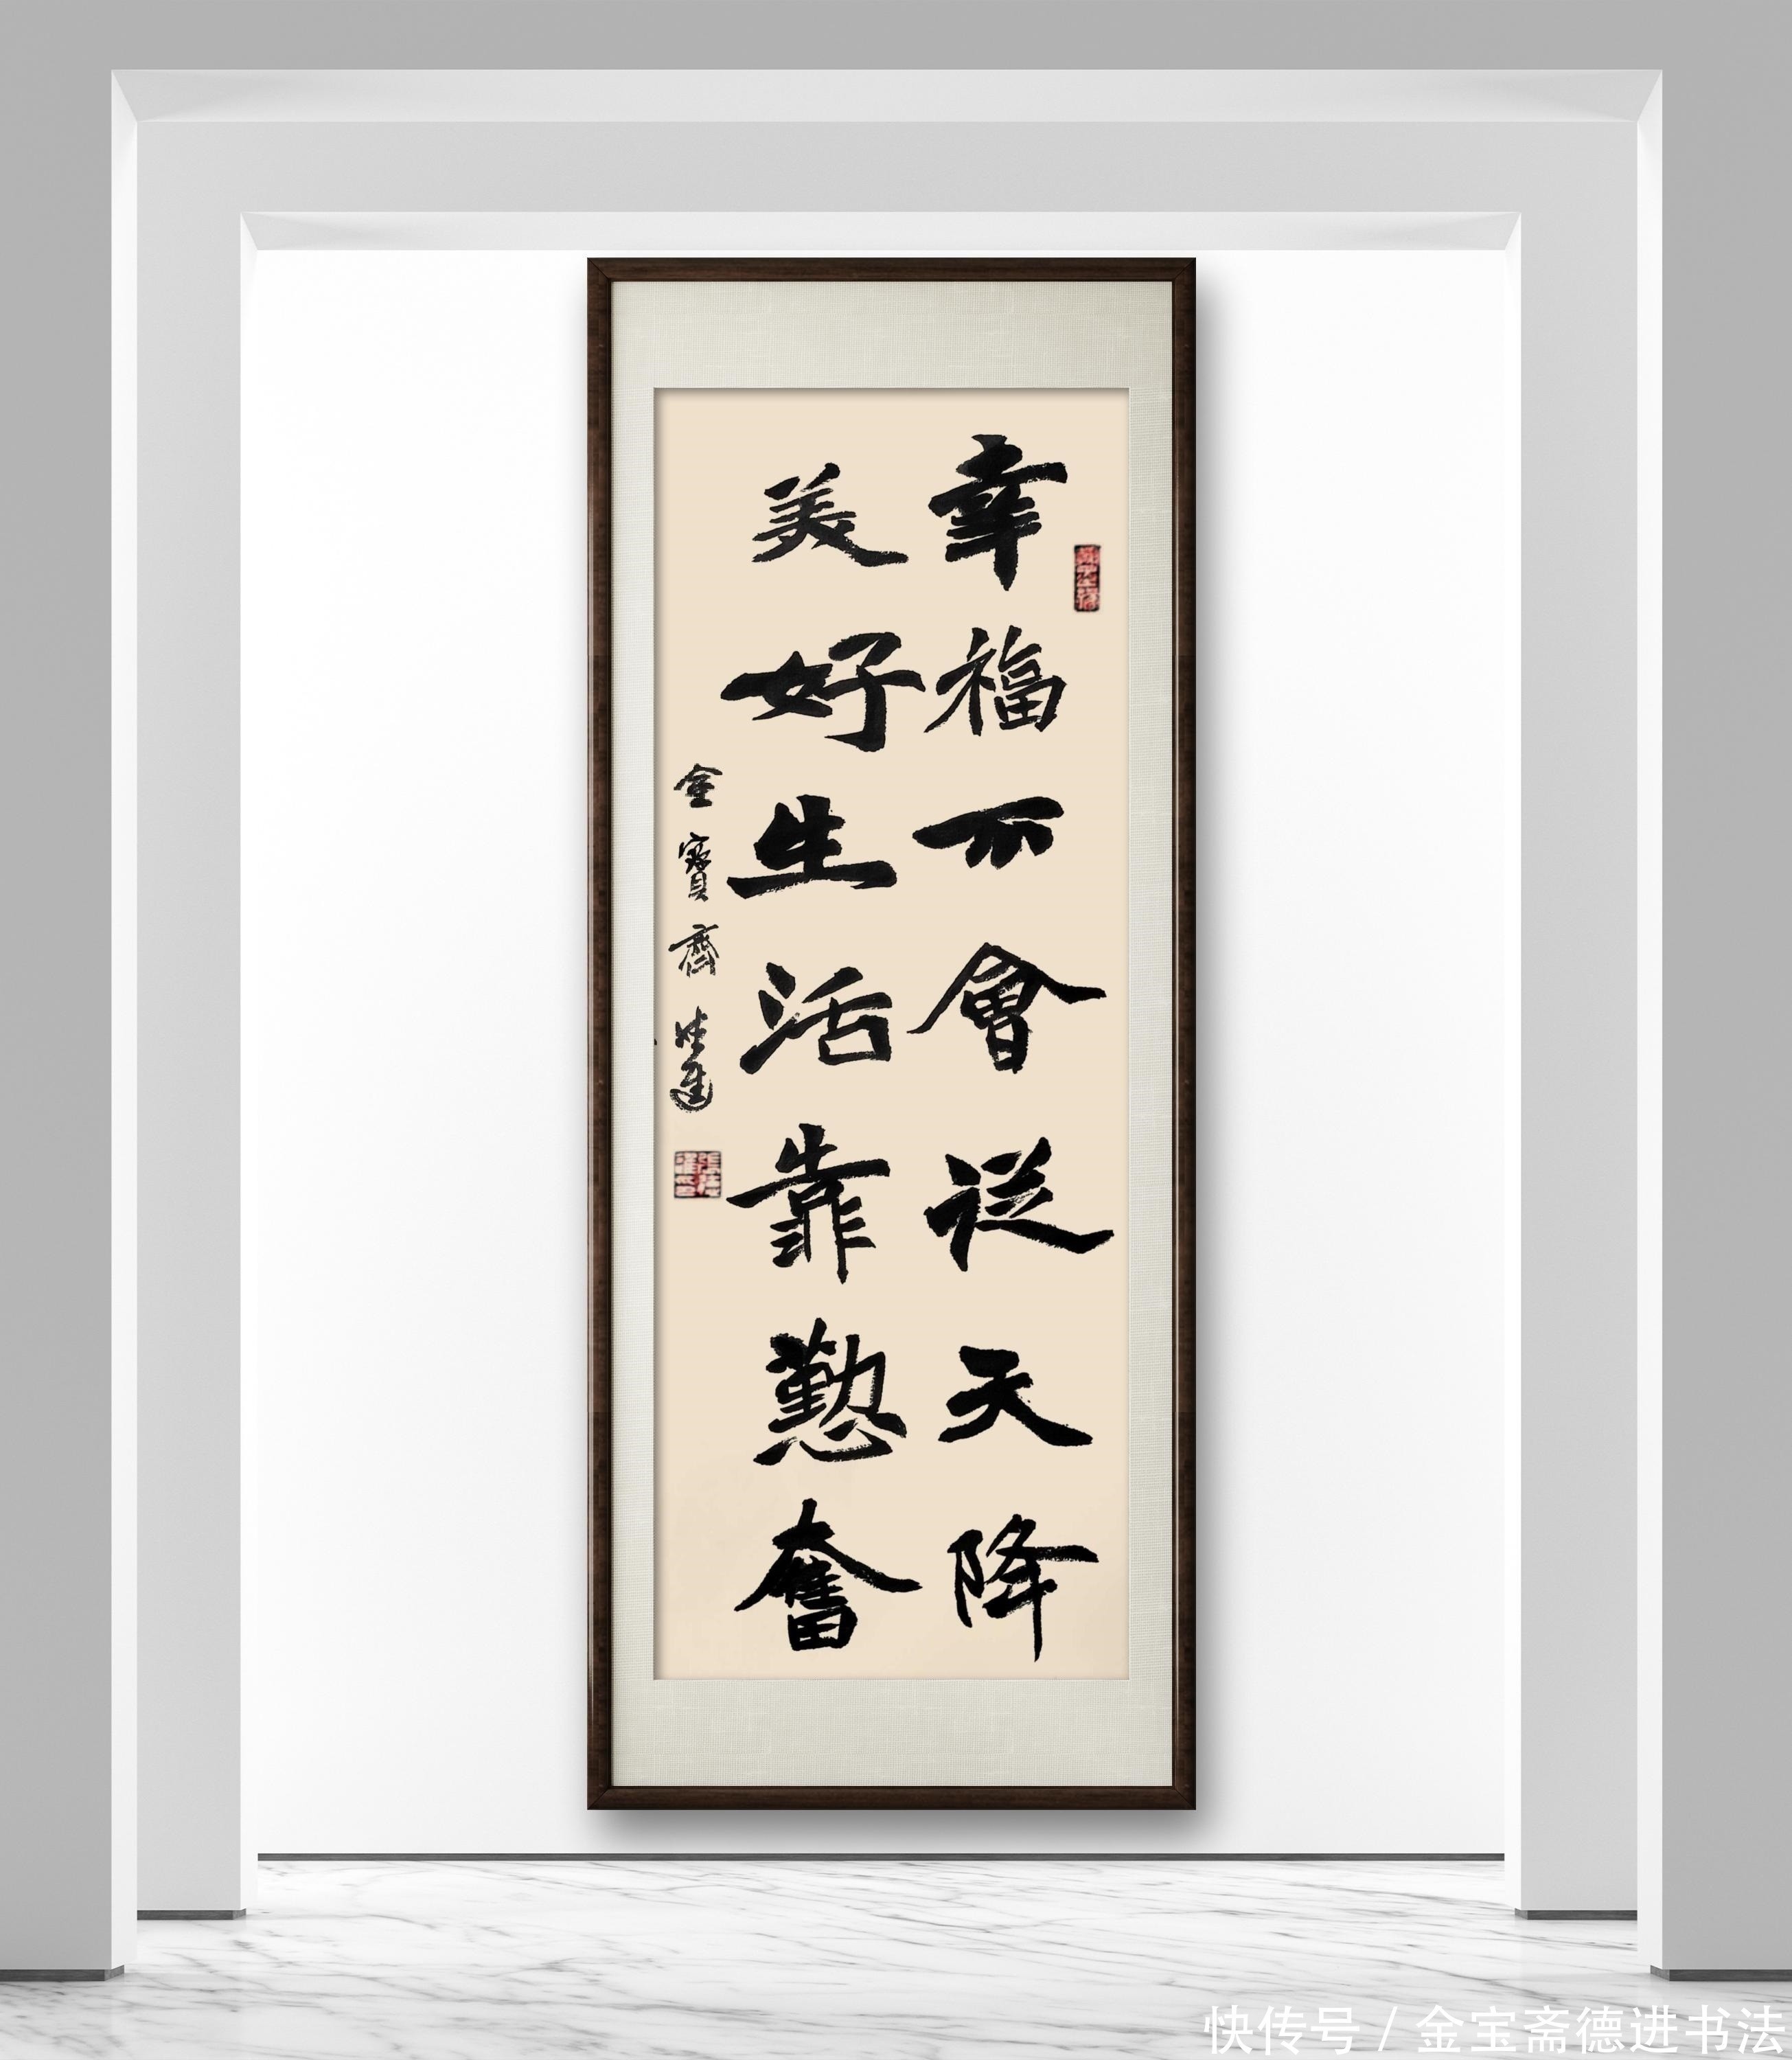 幸福不會從天降
美好生活靠懃奮
金寶齋 德進
快传号 / 金宝斋德进书法